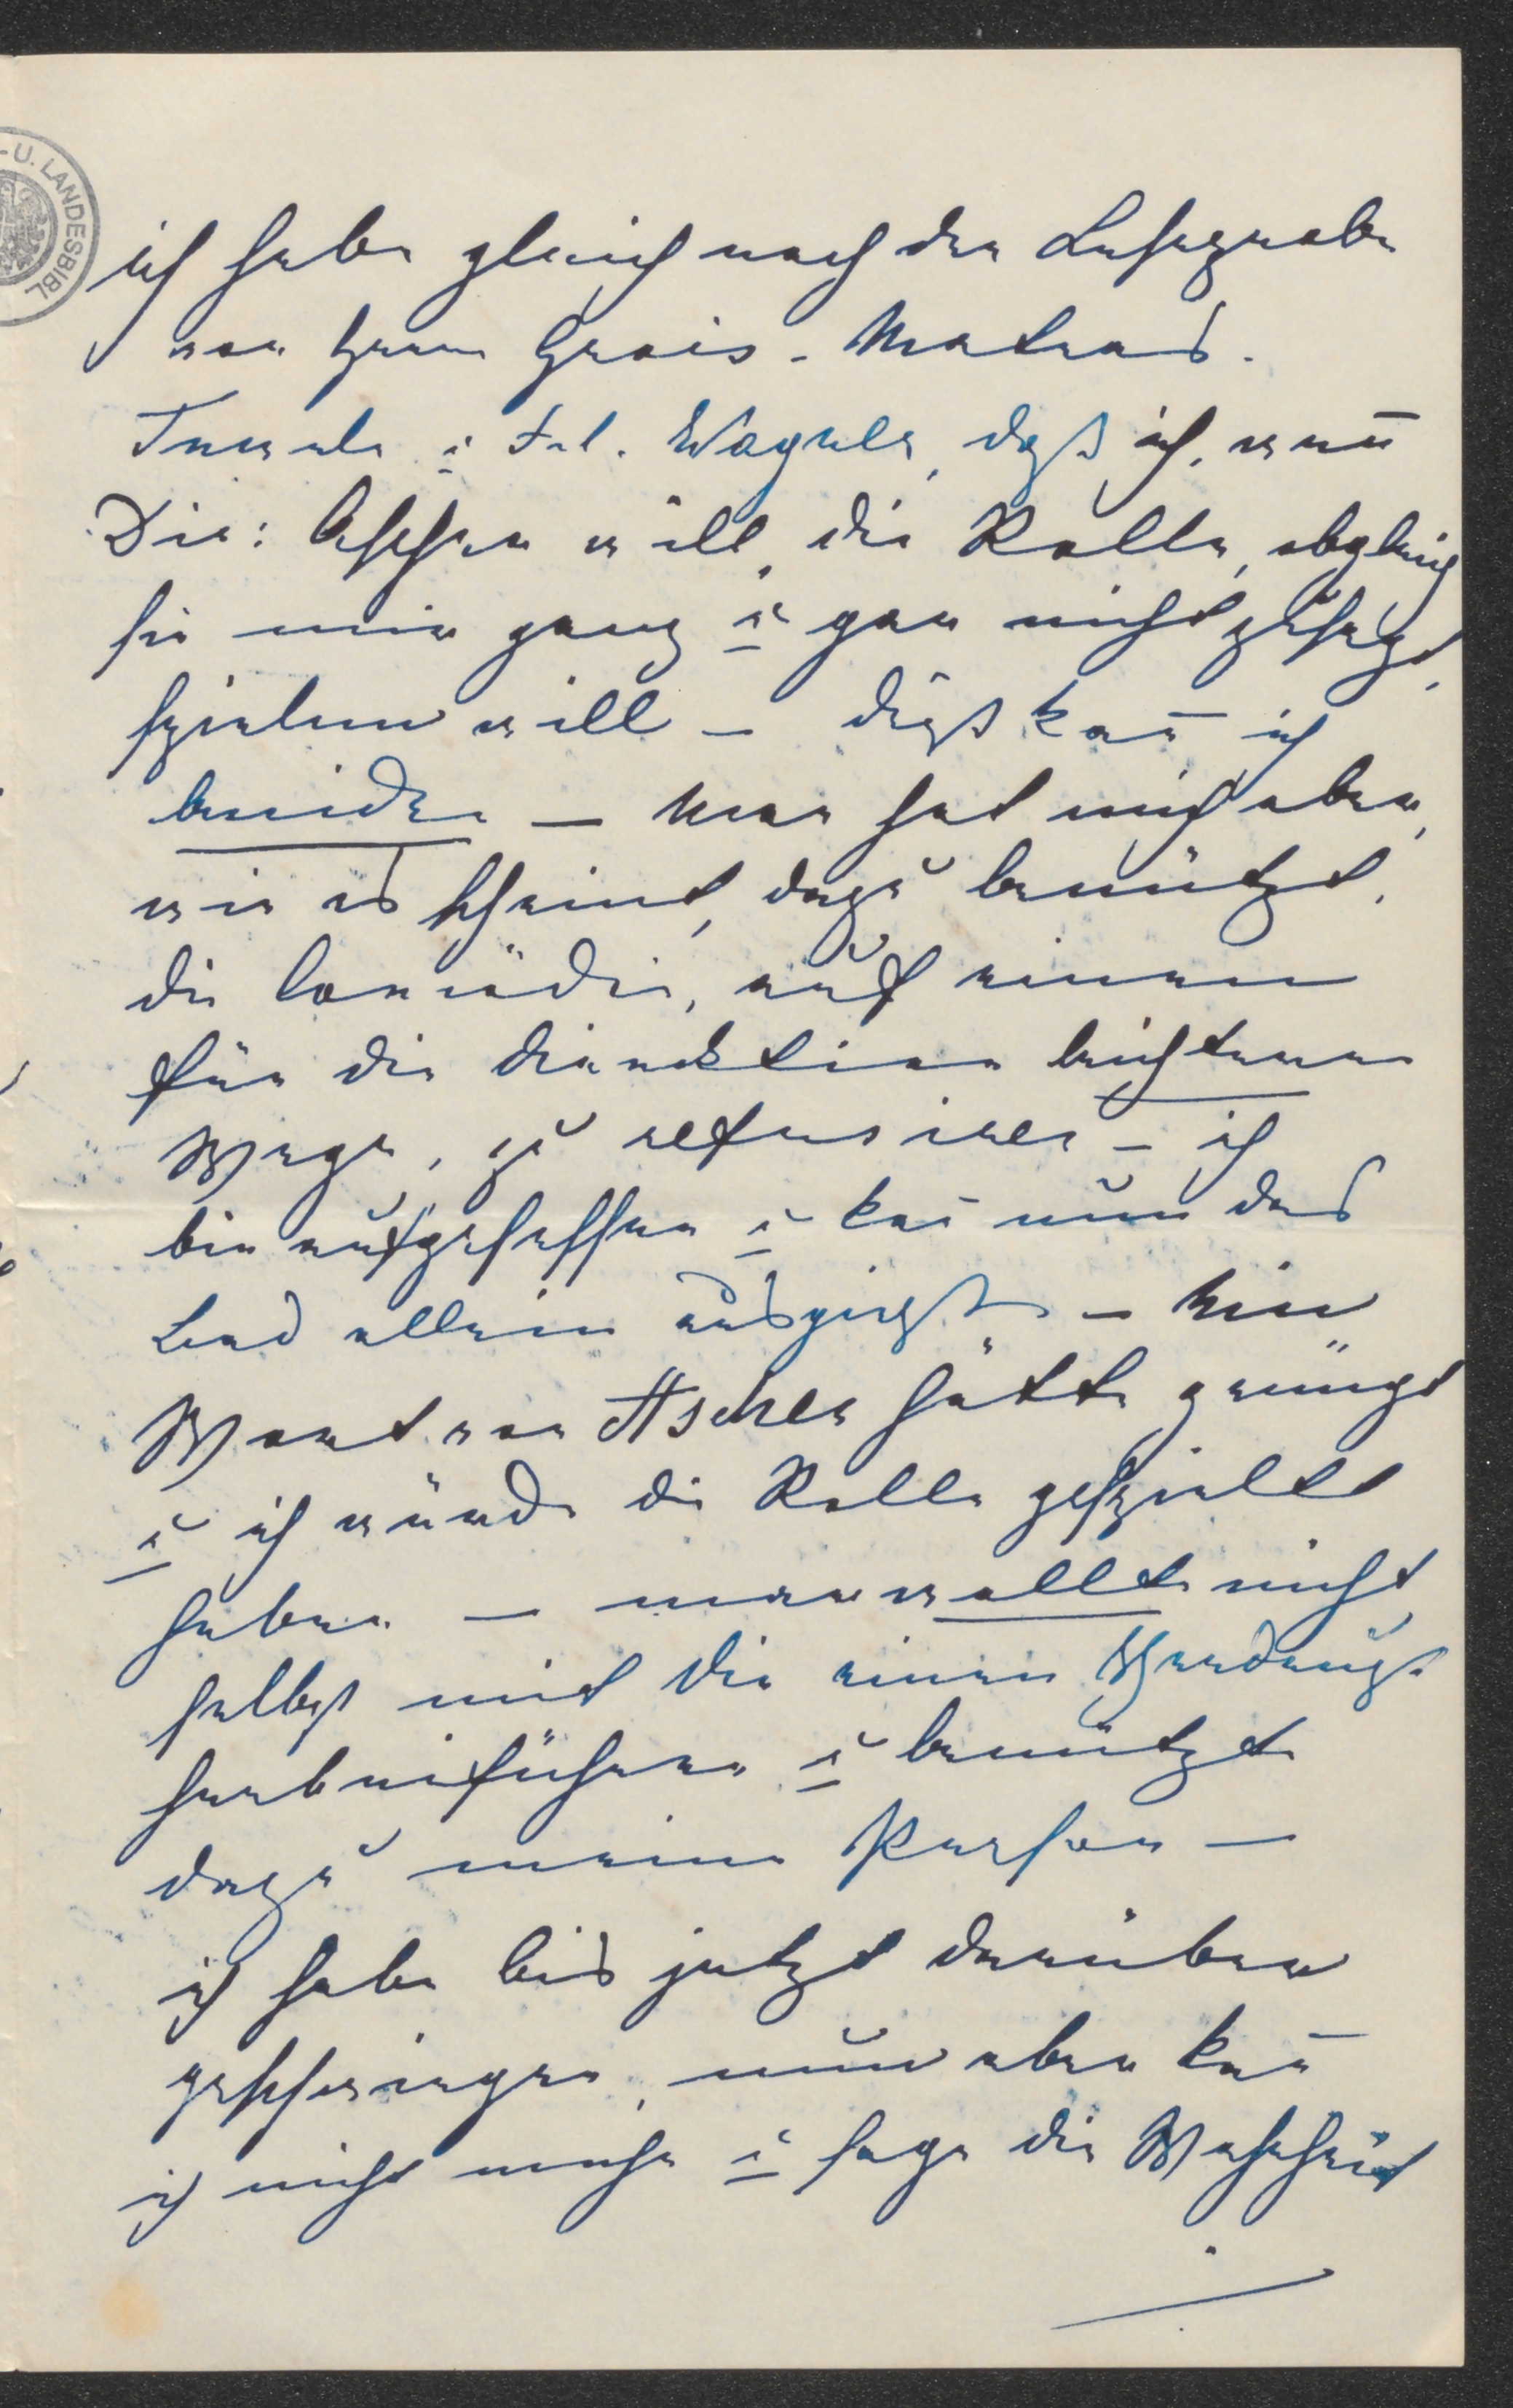 -U. LANDESBIBL
ich habe gleich nach der Leseprobe
vor Herrn Grois. Matras.
Treuman u Frl. Wagner, daß ich, weñ
Dir: Ascher will, die Rolle, obgleich
sie mir ganz u gar nicht zusagt,
spielen will – dieß kañ ich
beeiden – Man hat mich aber,
wie es scheint, dazu benützt,
die Comödie, auf einem
für die Direktion leichteren
Wege, zu refusiren – ich
bin aufgesessen u kañ nun das
Bad allein ausgießen – Ein
Wort von Ascher hätte genügt
u ich würde die Rolle gespielt
haben – man wollte nicht
selbst mit Dir einen Verdruß
herbeiführen u benützte
dazu meine Person –
ich habe bis jetzt darüber
geschwiegen, nun aber kañ
ich nicht mehr u sage die Wahrheit